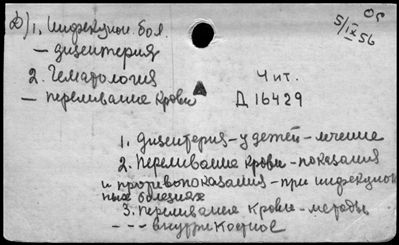 1. Инфекцион. бол.
— дизентерия
2. Гематология
— переливание крови
Ор
5/IX 56
Чит.
Д 16429
1. Дизентерия – у детей – лечение
2. Переливание крови – показания
и противопоказания – при инфекцион
ных болезнях
3. Переливание крови – методы
– – – внутрикостное